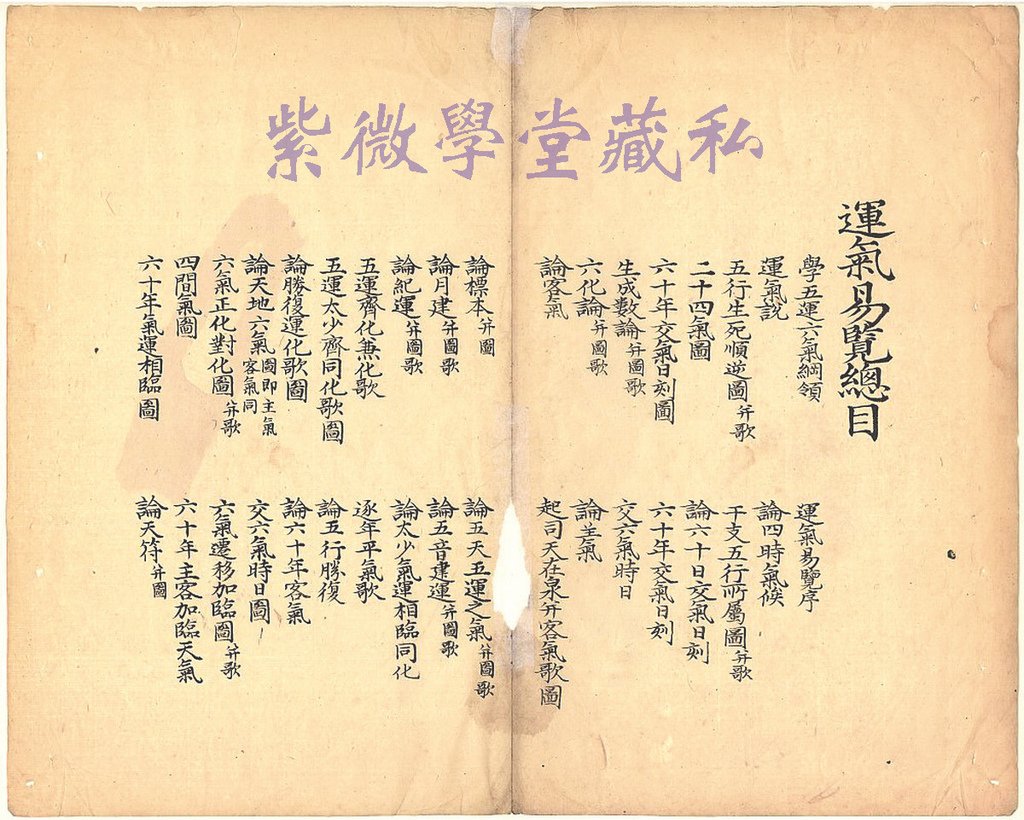 紫微學堂藏私
運氣易覽總目
學五運六氣綱領
運氣易覽序
運氣說
論四時氣候
五行生死順逆圖并歌
干支五行所屬圖并歌
二十四氣圖
論六十日交氣日刻
六十年交氣日刻圖
六十年交氣日刻
生成數論并圖歌
交六氣時日
六化論并圖歌
論主氣
論客氣
起司天在泉并客氣歌圖
論標本并圖
論五天五運之氣并圖歌
論月建并圖歌
論五音建運并圖歌
論紀運并圖歌
論太少氣運相臨同化
五運齊化兼化歌
逐年平氣歌
五運太少齊同化歌圖
論五行勝復
論勝復運化歌圖
論六十年客氣
論天地六氣圖即主氣客氣同
交六氣時日圖
六氣正化對化圖并歌
六氣遷移加臨圖并歌
四間氣圖
六十年主客加臨天氣
六十年氣運相臨圖
論天符并圖